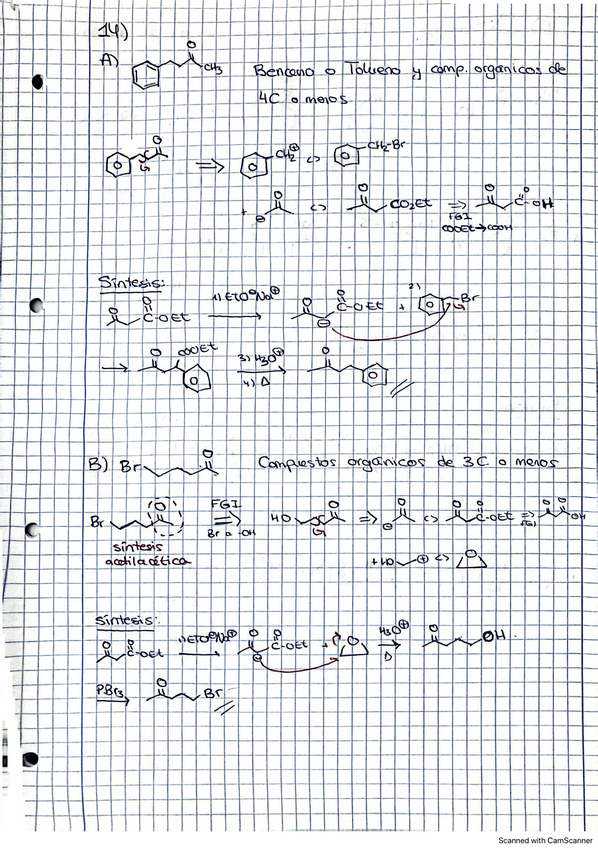 14)
A) O CH3 Benceno o Tolueno y comp. orgánicos de
4C o menos
O ⇒ CH2⊕ <> CH2-Br
+ O ⊖ <> O CO2Et ⇒ FGI COOEt→COOH O O C-OH
Síntesis:
O O C-OEt 1) EtO⊖Na⊕ O O C-OEt ⊖ + 2) Br
→ O COOEt 3) H3O⊕ 4) Δ O
B) Br O Compuestos orgánicos de 3C o menos
Br O FGI ⇒ Br a -OH HO O ⇒ O ⊖ <> O O C-OEt ⇒ FGI O O OH
síntesis
acetilacética
+ HO ⊕ <> O
Síntesis:
O O C-OEt 1) EtO⊖Na⊕ O O C-OEt ⊖ + O H3O⊕ Δ O OH
PBr3 O Br
Scanned with CamScanner